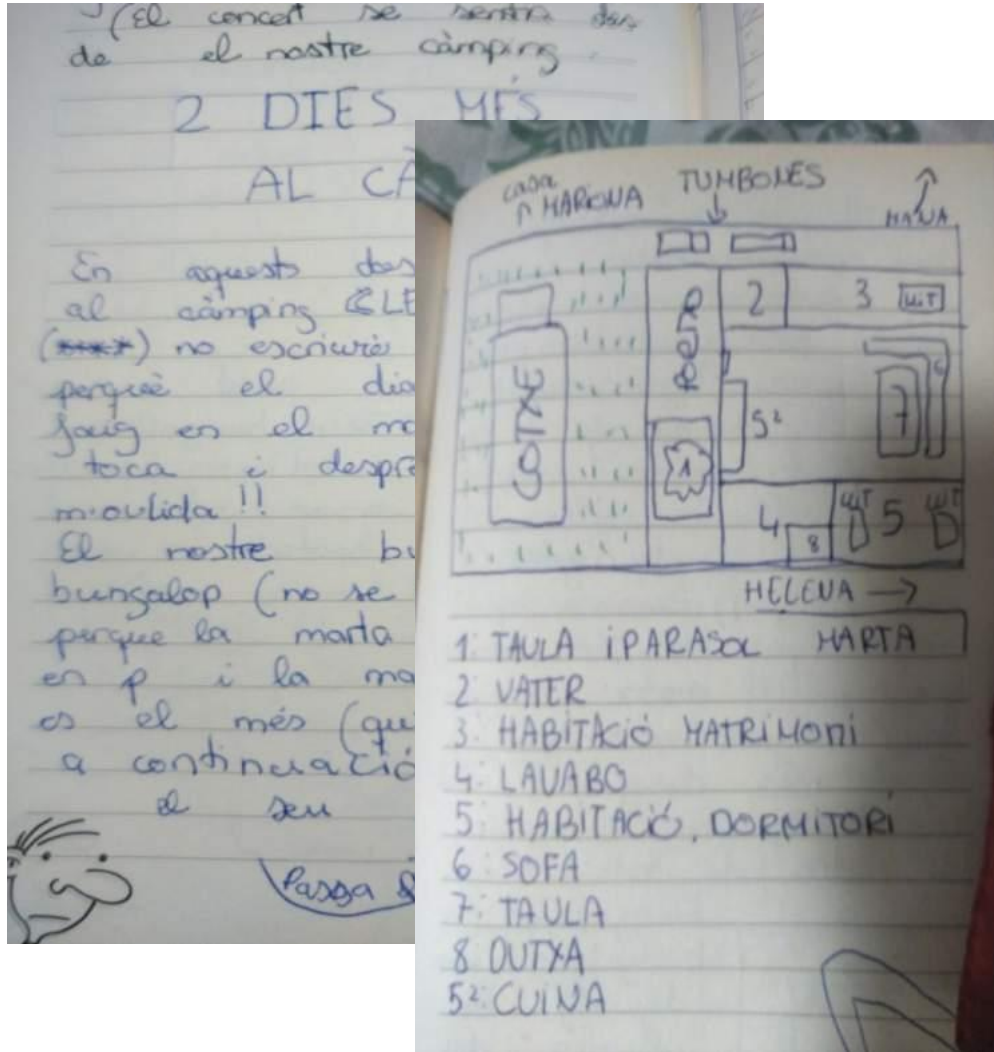 (El concert se sentia des
de el nostre càmping.
2 DIES MÉS
AL CÀ
En aquests dos
al càmping
no escriuré
perquè el dia
faig en el
toca i despré
m'oulida!!
El nostre
bungalop (no se
perque la marta
en p i la ma
es el més (qu
a continuació
el seu
Passa
casa
↑ MARIONA
TUMBONES
↓
↑
MAIVA
COTXE
PORXO
1
2
3 LLIT
5²
6
7
4
8
LLIT 5 LLIT
HELENA →
1: TAULA i PARASOL MARTA
2: VATER
3: HABITACIÓ MATRIMONI
4: LAVABO
5: HABITACIÓ. DORMITORI
6: SOFA
7: TAULA
8 DUTXA
5²: CUINA